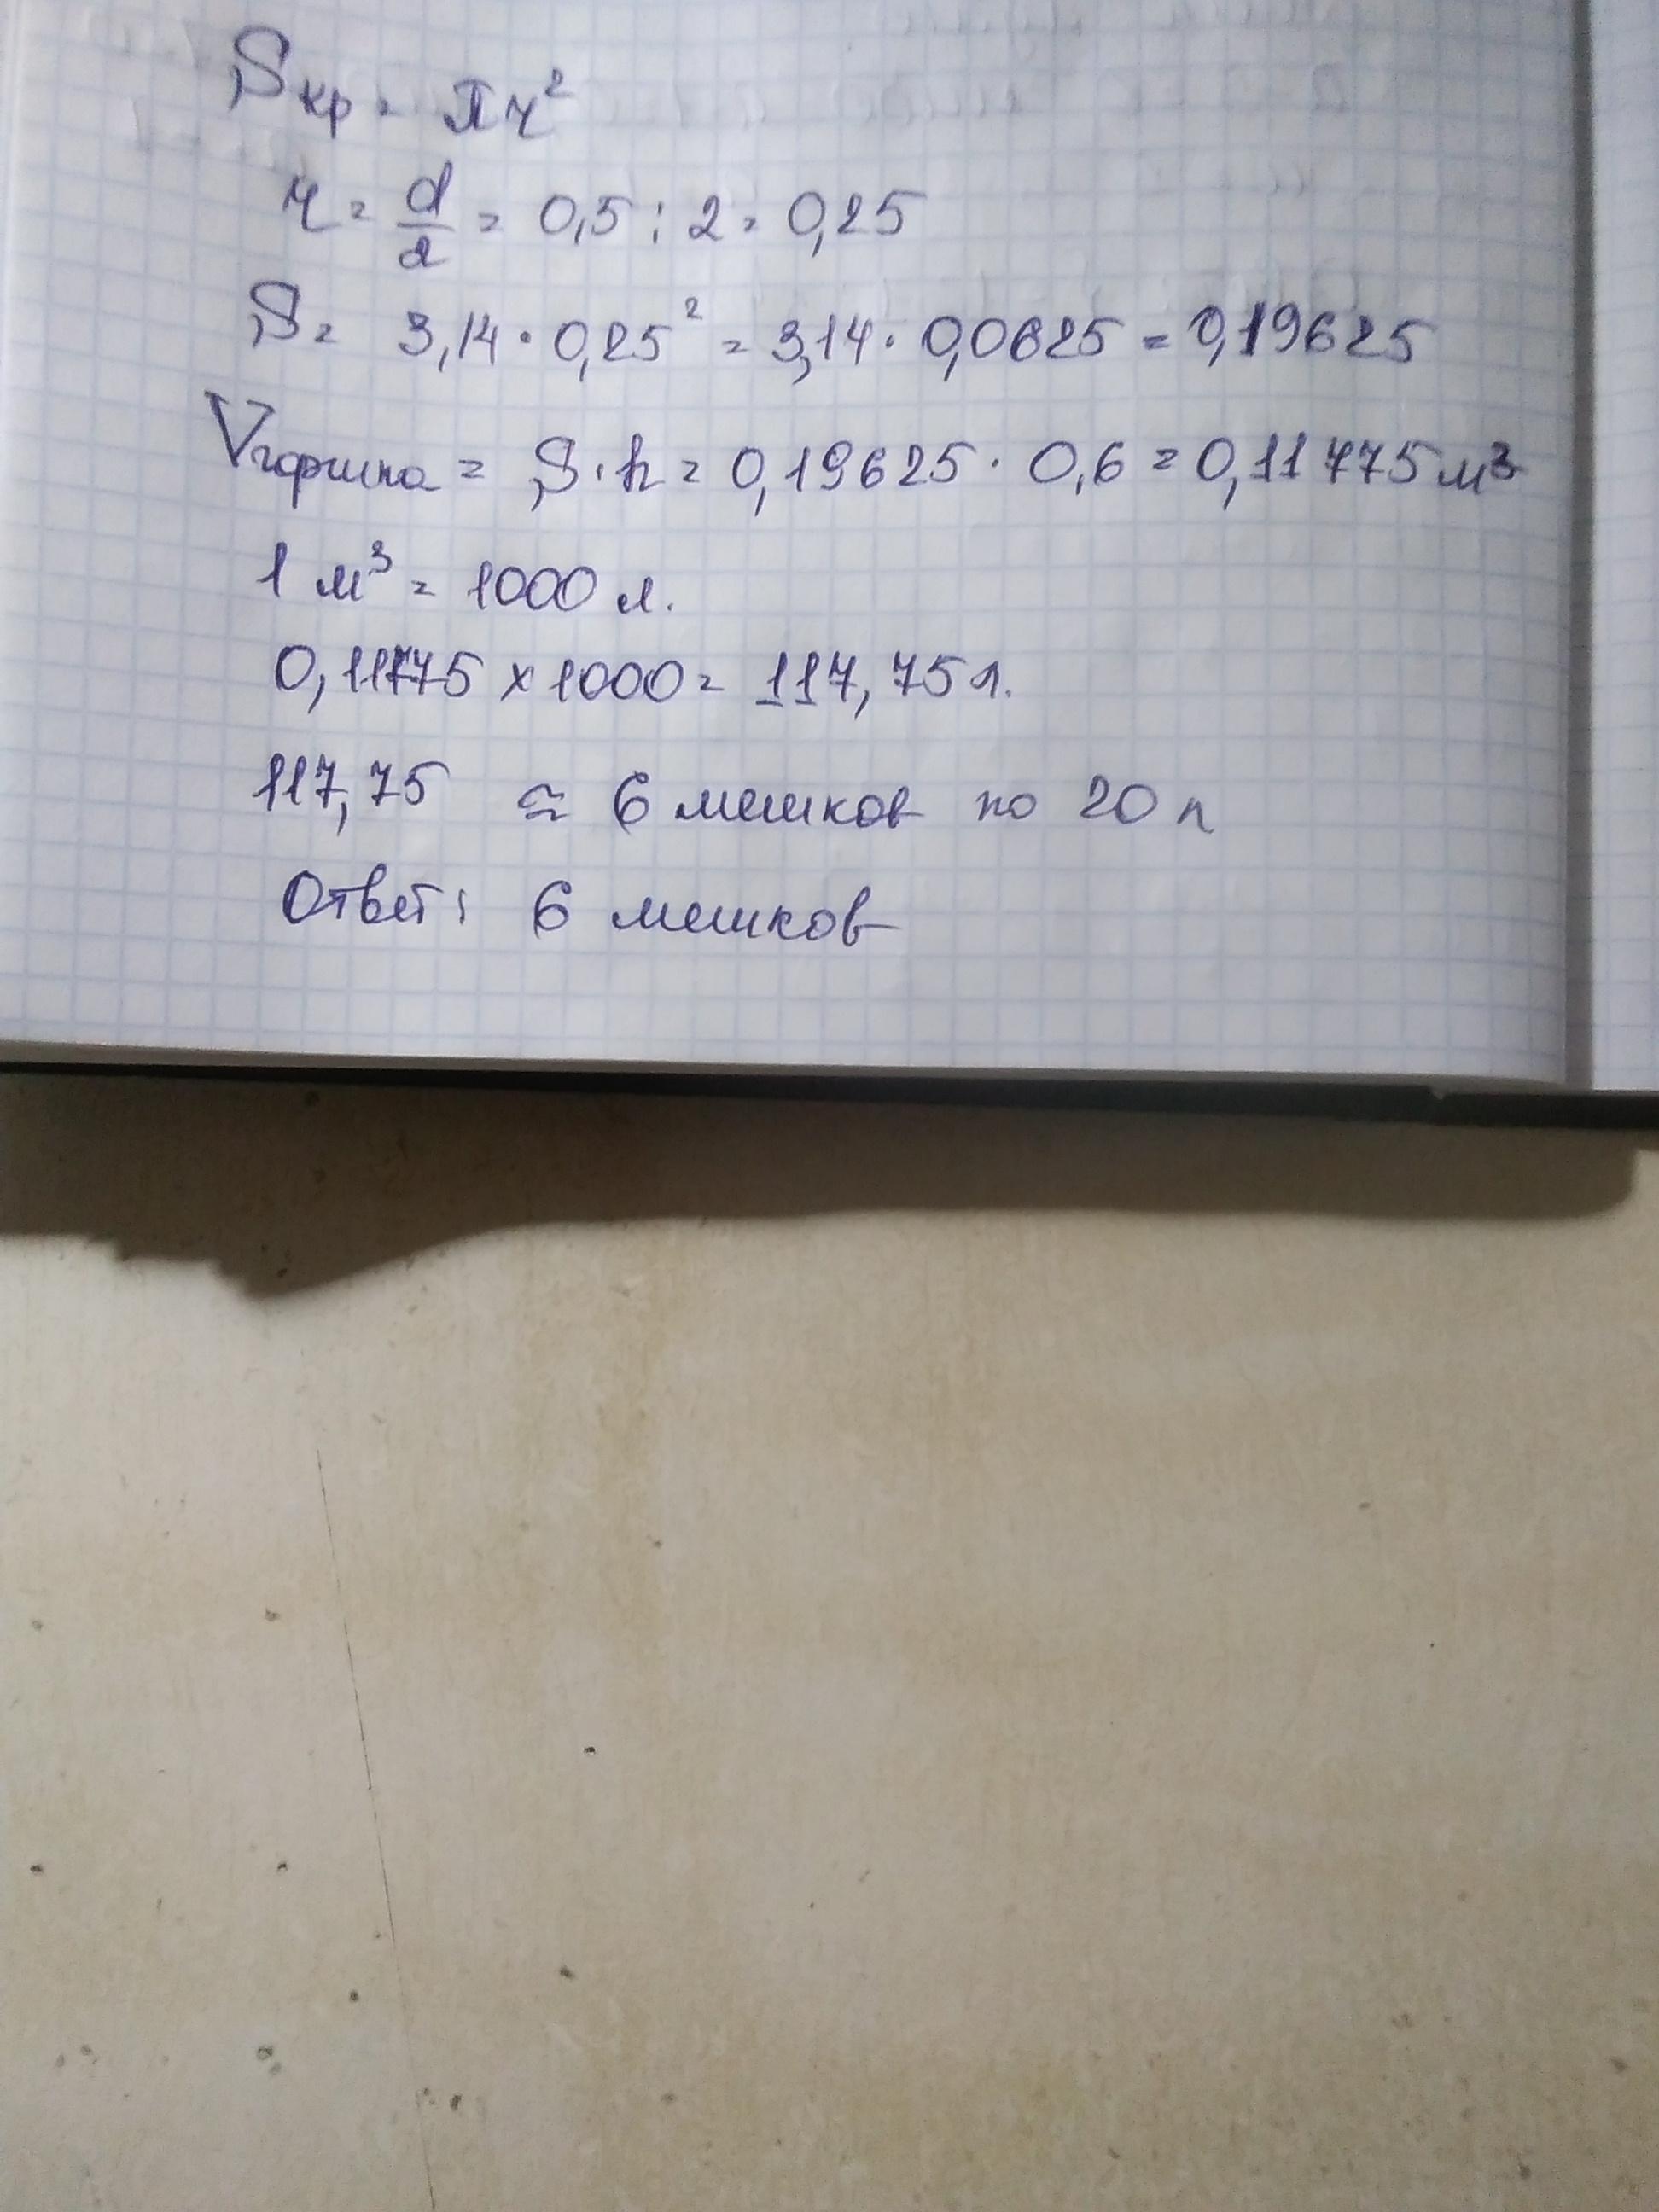 Sкр = πr²
r = d/2 = 0,5 : 2 = 0,25
S = 3,14 · 0,25² = 3,14 · 0,0625 = 0,19625
Vгоршка = S · h = 0,19625 · 0,6 = 0,11775 м³
1 м³ = 1000 л.
0,11775 x 1000 = 117,75 л.
117,75 ≈ 6 мешков по 20 л
Ответ: 6 мешков